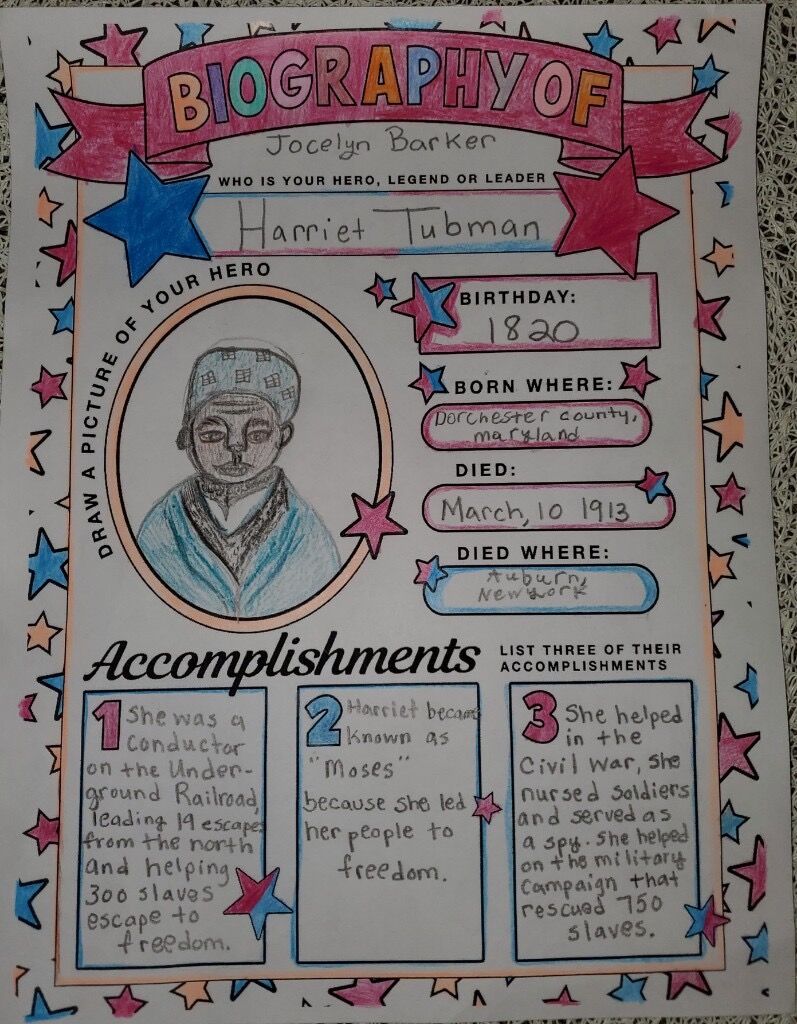 BIOGRAPHY OF
Jocelyn Barker
WHO IS YOUR HERO, LEGEND OR LEADER
Harriet Tubman
DRAW A PICTURE OF YOUR HERO
BIRTHDAY:
1820
BORN WHERE:
Dorchester county,
maryland
DIED:
March, 10 1913
DIED WHERE:
Auburn,
Newyork
Accomplishments
LIST THREE OF THEIR
ACCOMPLISHMENTS
1 She was a
conductor
on the Under-
ground Railroad,
leading 19 escapes
from the north
and helping
300 slaves
escape to
freedom.
2 Harriet became
known as
"Moses"
because she led
her people to
freedom.
3 She helped
in the
Civil War, she
nursed soldiers
and served as
a spy. She helped
on the military
campaign that
rescued 750
slaves.